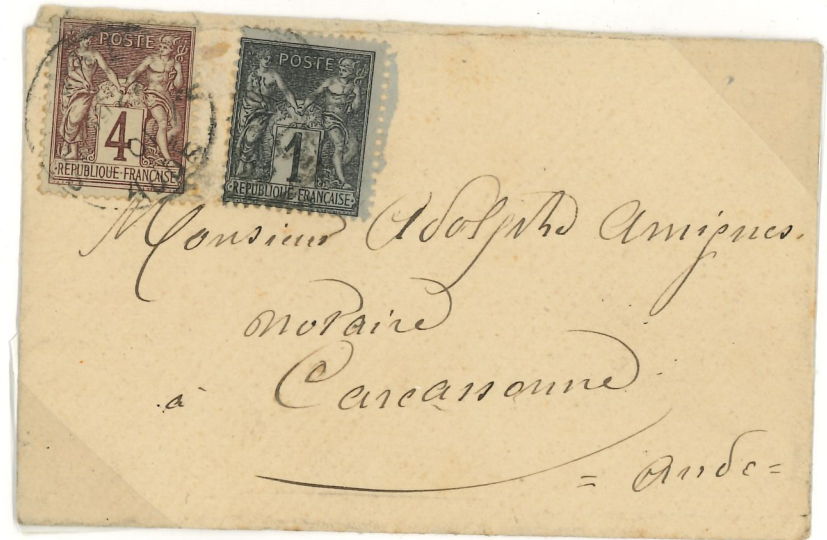 POSTE
4
REPUBLIQUE FRANÇAISE
POSTE
1
REPUBLIQUE FRANÇAISE
Monsieur Adolphe Amigues.
notaire
à Carcassonne
= Aude =